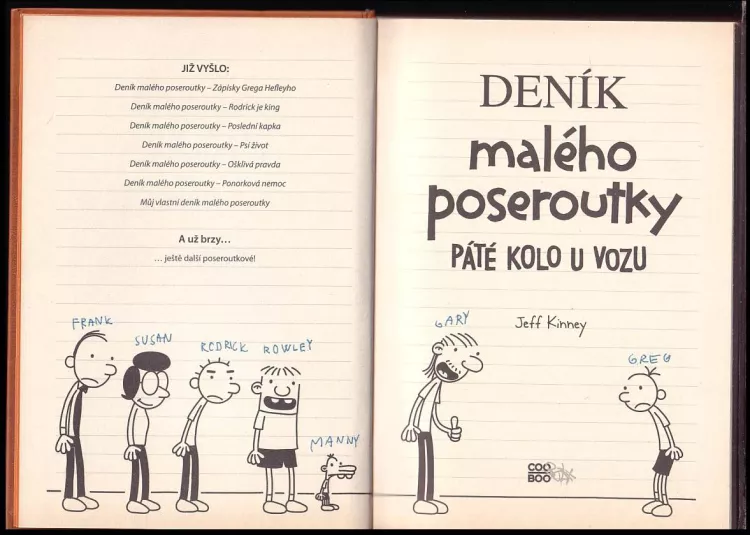 JIŽ VYŠLO:
Deník malého poseroutky – Zápisky Grega Hefleyho
Deník malého poseroutky – Rodrick je king
Deník malého poseroutky – Poslední kapka
Deník malého poseroutky – Psí život
Deník malého poseroutky – Ošklivá pravda
Deník malého poseroutky – Ponorková nemoc
Můj vlastní deník malého poseroutky
A už brzy...
... ještě další poseroutkové!
FRANK
SUSAN
RODRICK
ROWLEY
MANNY
DENÍK
malého
poseroutky
PÁTÉ KOLO U VOZU
Jeff Kinney
GARY
GREG
COO
BOO